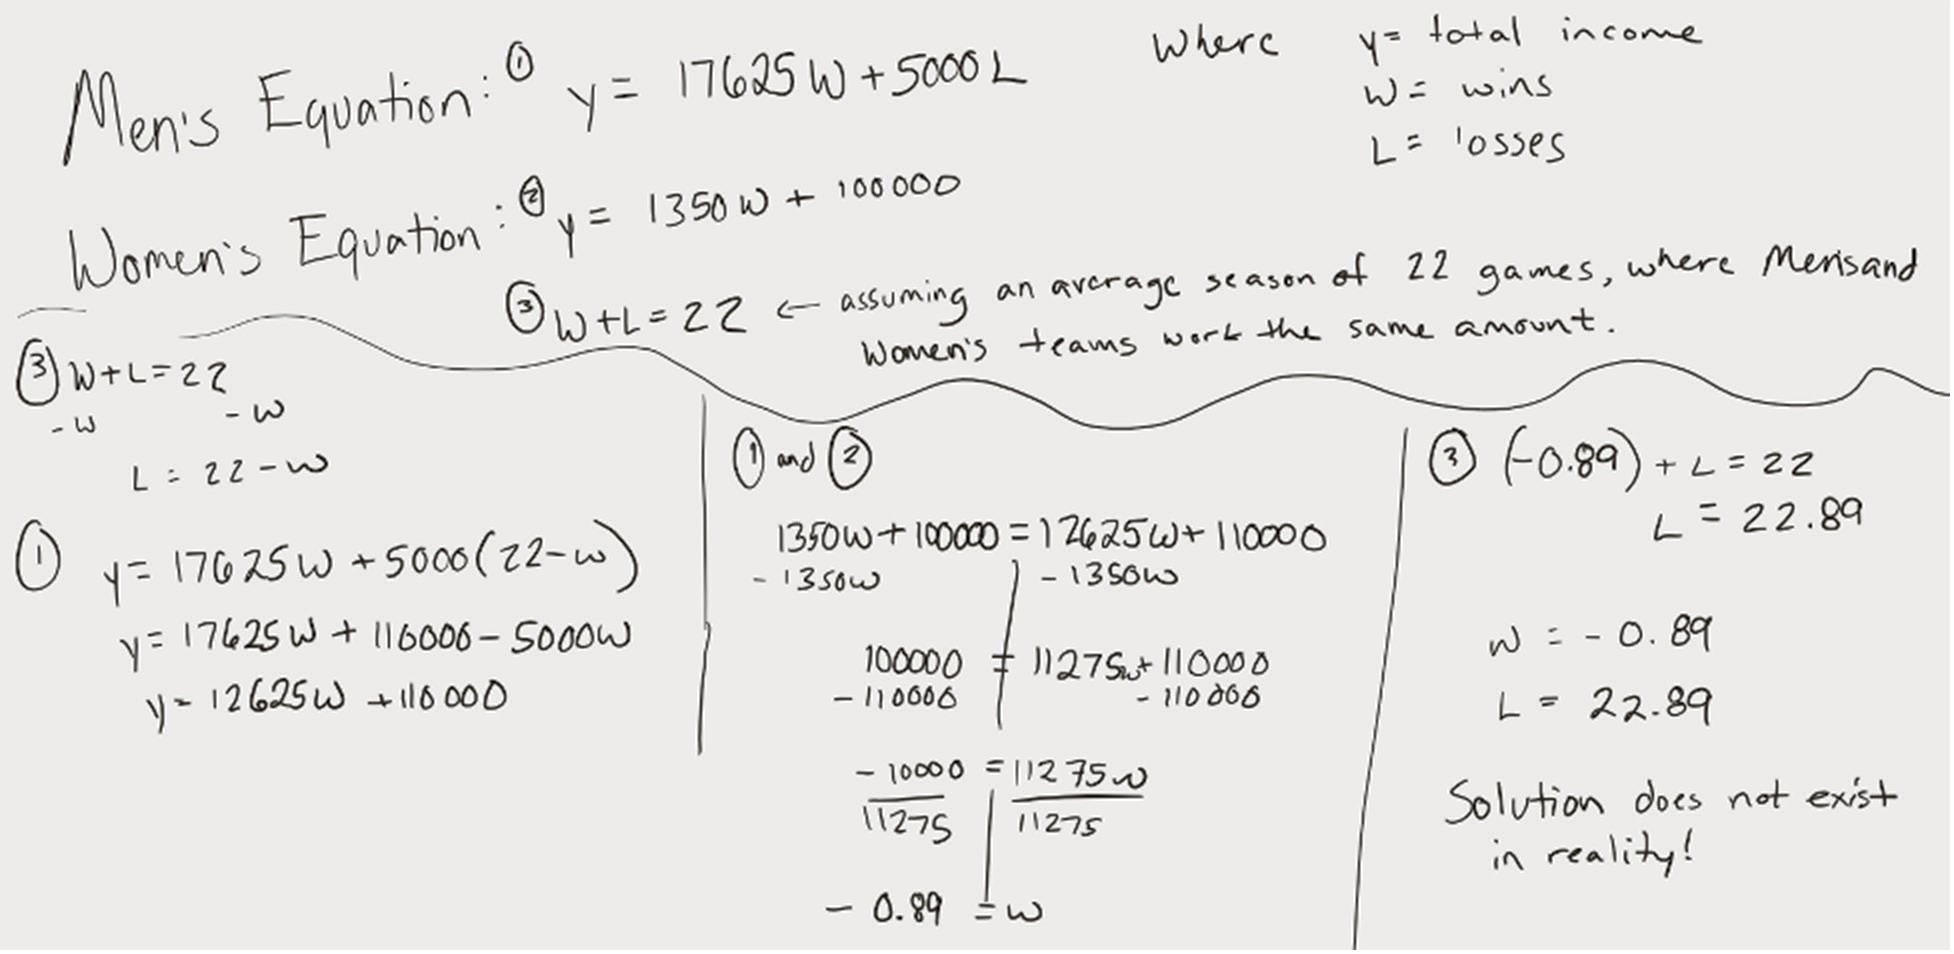 Men's Equation: ① y = 17625W + 5000L
Where y = total income
W = wins
L = losses
Women's Equation: ② y = 1350W + 100000
③ W+L=22 ← assuming an average season of 22 games, where Men's and
Women's teams work the same amount.
③ W+L=22
-W -W
L = 22-W
① y = 17625W + 5000(22-W)
y = 17625W + 110000 - 5000W
y = 12625W + 110000
① and ②
1350W + 100000 = 12625W + 110000
- 1350W - 1350W
100000 = 11275W + 110000
- 110000 - 110000
- 10000 = 11275W
11275 11275
- 0.89 = W
③ (-0.89) + L = 22
L = 22.89
W = - 0.89
L = 22.89
Solution does not exist
in reality!